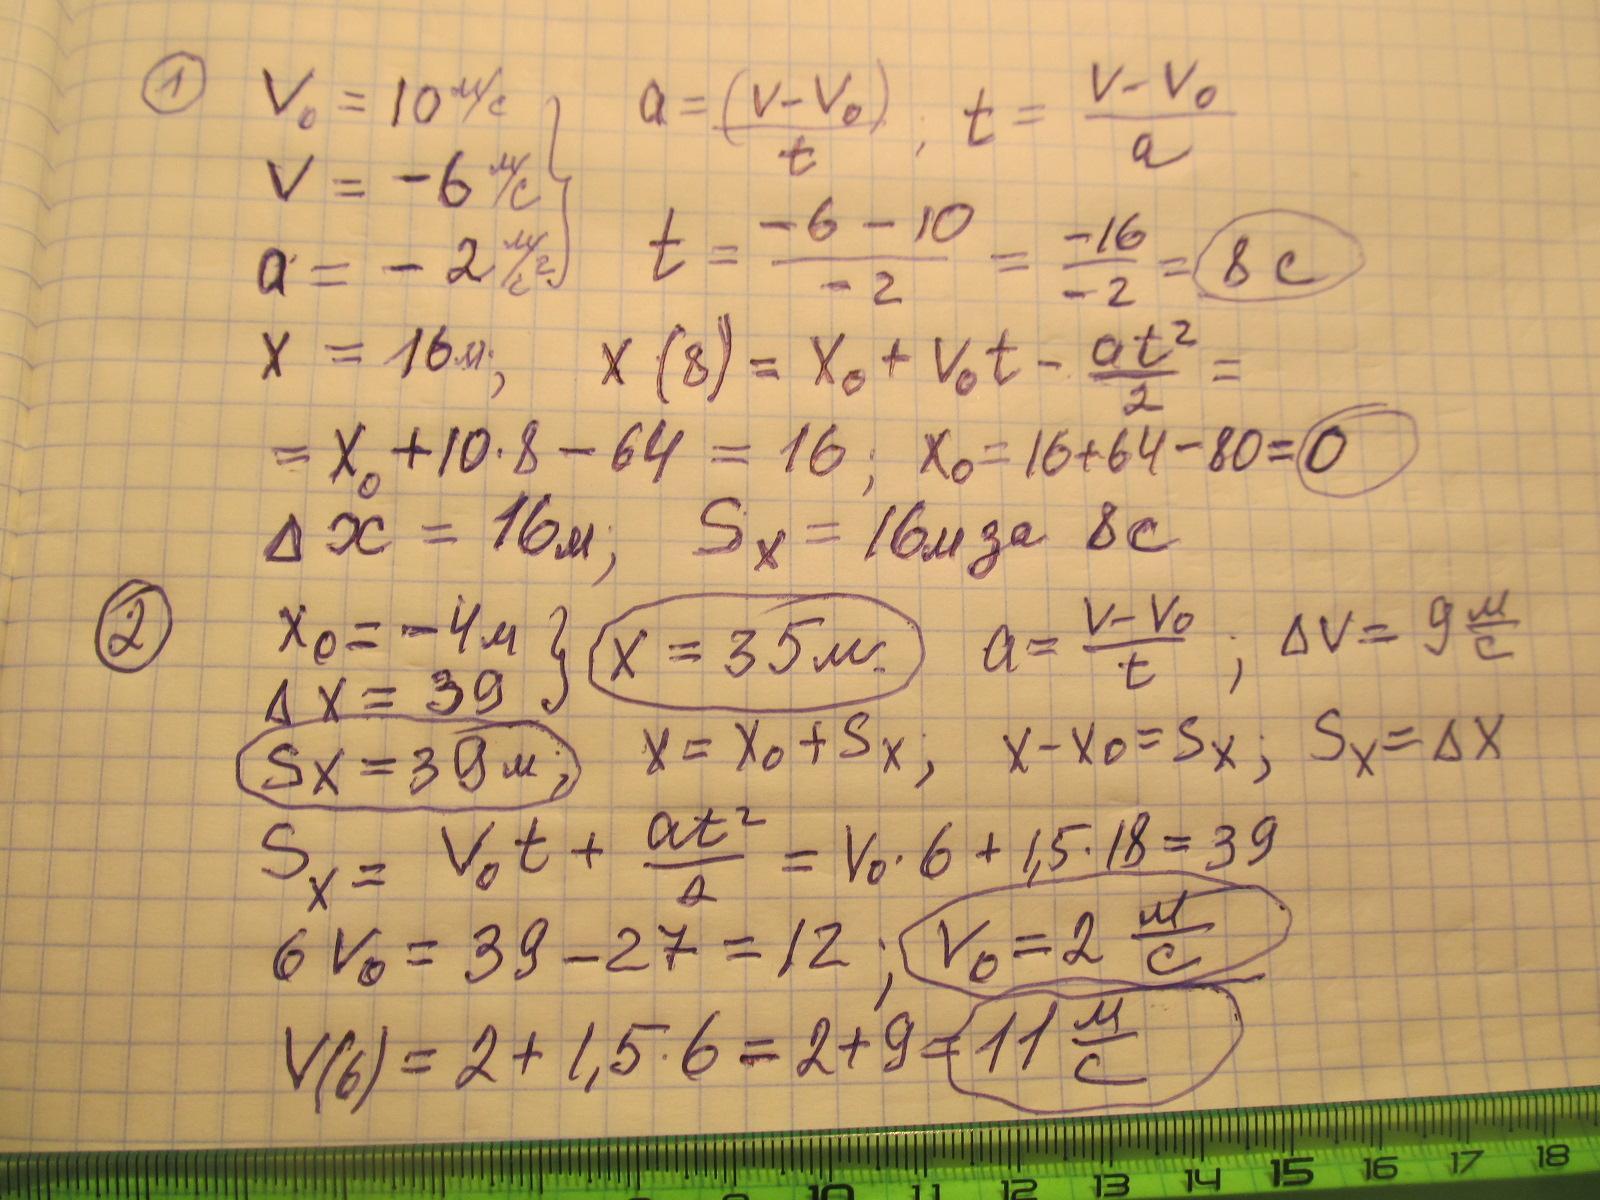 ① V₀ = 10 м/с } a = (V - V₀)/t ; t = (V - V₀)/a
V = -6 м/с
a = -2 м/с² t = (-6 - 10)/(-2) = (-16)/(-2) = 8 с
X = 16м; X(8) = X₀ + V₀t - at²/2 =
= X₀ + 10·8 - 64 = 16; X₀ = 16+64-80=0
Δx = 16м; Sx = 16м за 8с
② X₀ = -4м } X = 35м. a = (V - V₀)/t ; ΔV = 9 м/с
ΔX = 39
Sx = 39м; X = X₀ + Sx; X - X₀ = Sx; Sx = ΔX
Sx = V₀t + at²/2 = V₀·6 + 1,5·18 = 39
6V₀ = 39 - 27 = 12; V₀ = 2 м/с
V(6) = 2 + 1,5·6 = 2+9 = 11 м/с
10 11 12 13 14 15 16 17 18